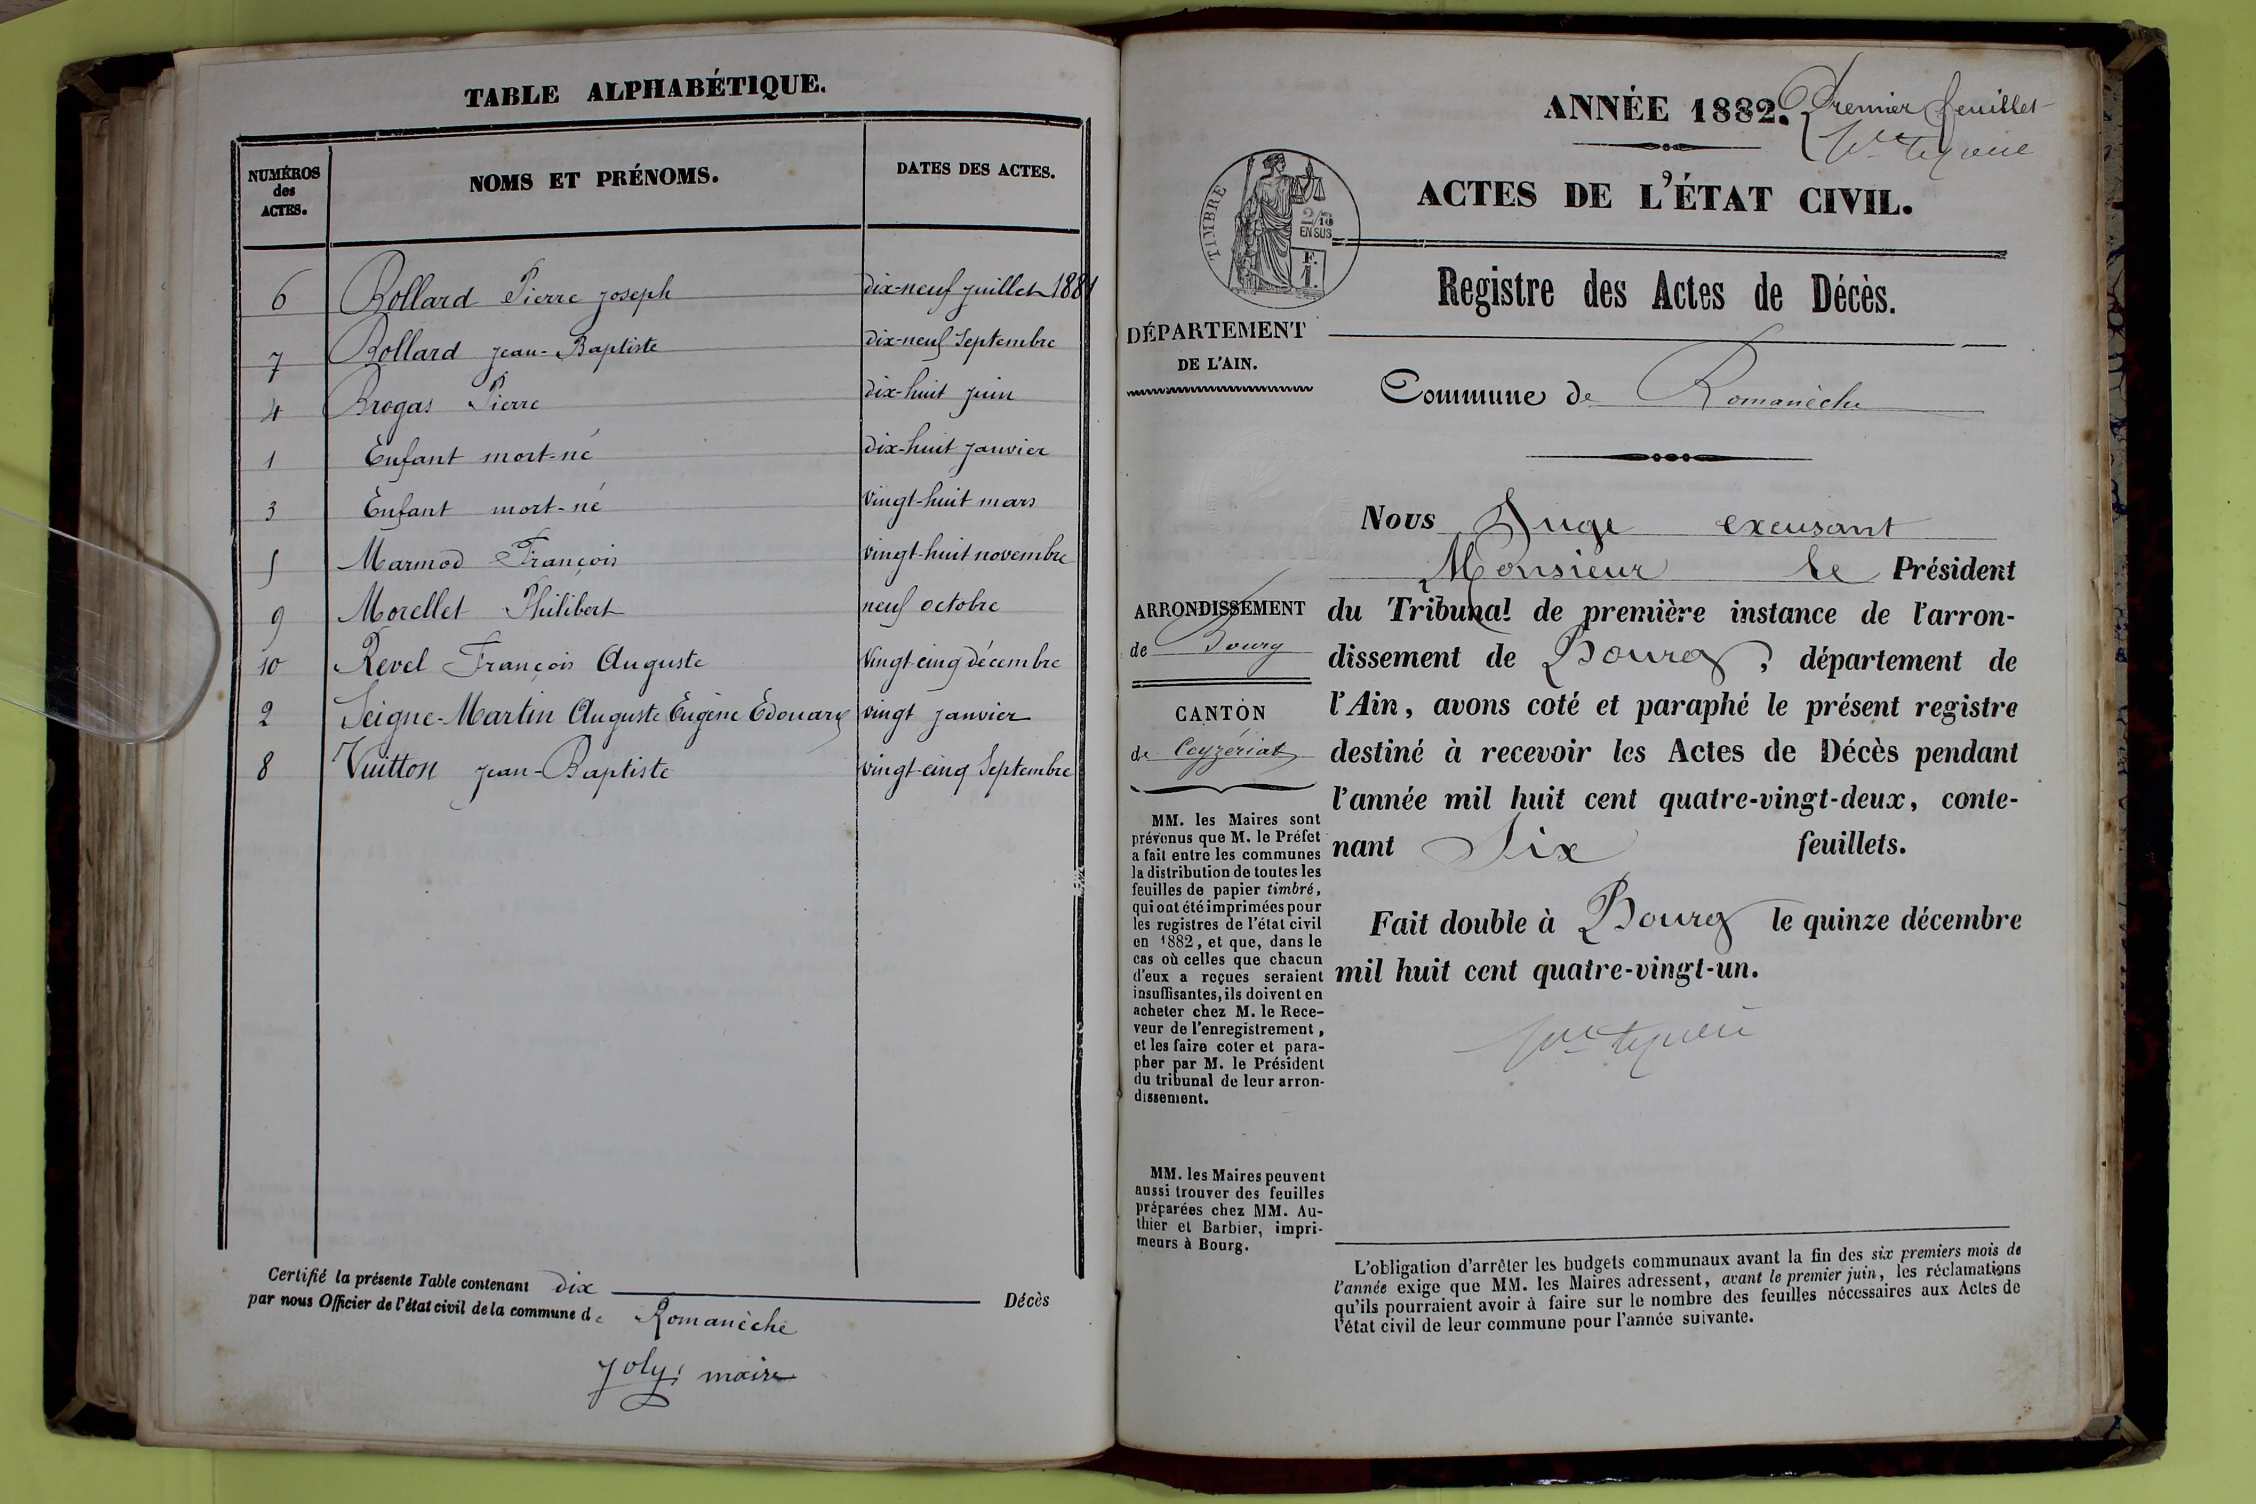 TABLE ALPHABÉTIQUE.
NUMÉROS des ACTES. NOMS ET PRÉNOMS. DATES DES ACTES.
6 Bollard Pierre Joseph dix-neuf juillet 1881
7 Bollard Jean-Baptiste dix-neuf Septembre
4 Brogas Pierre dix-huit juin
1 Enfant mort-né dix-huit janvier
3 Enfant mort-né vingt-huit mars
5 Marmod François vingt-huit novembre
9 Morellet Philibert neuf octobre
10 Revel François Auguste vingt-cinq décembre
2 Seigne-Martin Auguste Eugène Edouard vingt janvier
8 Vuitton Jean-Baptiste vingt-cinq Septembre
Certifié la présente Table contenant dix Décès
par nous Officier de l'état civil de la commune de Romanèche
Joly, maire
Premier feuillet
ANNÉE 1882.
ACTES DE L'ÉTAT CIVIL.
TIMBRE
2/10
EN SUS
F.
1.
Registre des Actes de Décès.
DÉPARTEMENT
DE L'AIN.
Commune de Romanèche
ARRONDISSEMENT
de Bourg
CANTON
de Ceyzériat
MM. les Maires sont
prévenus que M. le Préfet
a fait entre les communes
la distribution de toutes les
feuilles de papier timbré,
qui ont été imprimées pour
les registres de l'état civil
en 1882, et que, dans le
cas où celles que chacun
d'eux a reçues seraient
insuffisantes, ils doivent en
acheter chez M. le Rece-
veur de l'enregistrement,
et les faire coter et para-
pher par M. le Président
du tribunal de leur arron-
dissement.
MM. les Maires peuvent
aussi trouver des feuilles
préparées chez MM. Au-
thier et Barbier, impri-
meurs à Bourg.
Nous Juge excusant
Monsieur le Président
du Tribunal de première instance de l'arron-
dissement de Bourg, département de
l'Ain, avons coté et paraphé le présent registre
destiné à recevoir les Actes de Décès pendant
l'année mil huit cent quatre-vingt-deux, conte-
nant Six feuillets.
Fait double à Bourg le quinze décembre
mil huit cent quatre-vingt-un.
L'obligation d'arrêter les budgets communaux avant la fin des six premiers mois de
l'année exige que MM. les Maires adressent, avant le premier juin, les réclamations
qu'ils pourraient avoir à faire sur le nombre des feuilles nécessaires aux Actes de
l'état civil de leur commune pour l'année suivante.